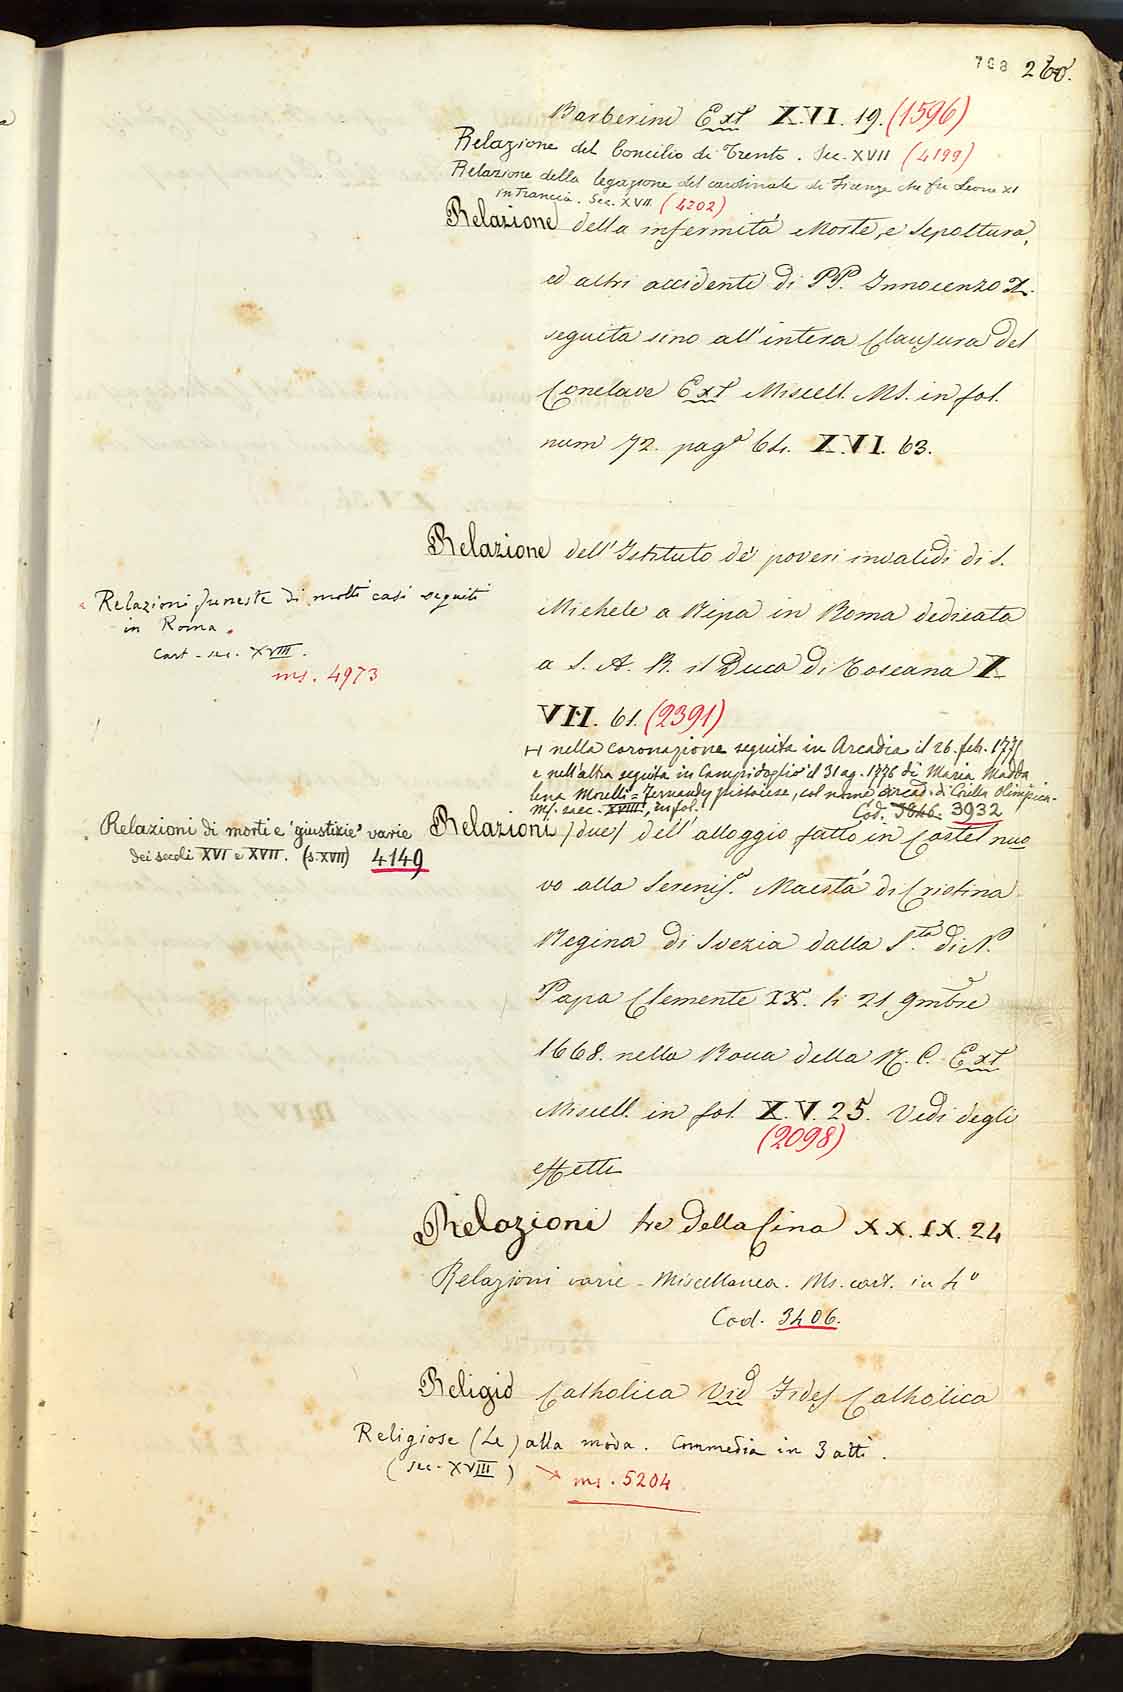 798 260.
Barberini Ext XVI. 19. (1596)
Relazione del Concilio di Trento. Sec. XVII (4199)
Relazione della legazione del cardinale di Firenze che fu Leone XI
in Francia. Sec. XVII. (4202)
Relazione della infermità Morte, e Sepoltura,
ed altri accidenti di PP. Innocenzo X.
seguita sino all'intera Clausura del
Conclave Ext Miscell. MS. in fol.
num 72. pagª 64. XVI. 63.
Relazione dell'Istituto de' poveri invalidi di S.
Michele a Ripa in Roma dedicata
a S. A. R. il Duca di Toscana X
VII. 61. (2391)
Relazioni funeste di molti casi seguiti
in Roma.
Cart - sec. XVIII.
ms. 4973
H nella coronazione seguita in Arcadia il 26. feb. 1775
e nell'altra seguita in Campidoglio il 31 ag. 1776 di Maria Madda
lena Morelli = Fernandez pistoiese, col nome arcad. di Corilla Olimpica.
Ms. saec. XVIII, in fol. Cod. 3846. 3932
Relazioni di morti e "giustizie" varie
dei secoli XVI e XVII. (s. XVII) 4149
Relazioni /due/ dell'alloggio fatto in Castel nuo
vo alla Sereniss.ª Maestà di Cristina
Regina di Svezia dalla S.tà di N.
Papa Clemente IX. li 21 9mbre
1668. nella Rocca della R. C. Ext
Miscell. in fol. X.V. 25. Vedi degli
(2098)
effetti
Relazioni tre della Cina XX. IX. 24
Relazioni varie - Miscellanea. Ms. cart. in 4º
Cod. 3406.
Religio Catholica Vid Fides Catholica
Religiose (Le) alla moda. Commedia in 3 atti.
(Sec. XVIII) ms. 5204